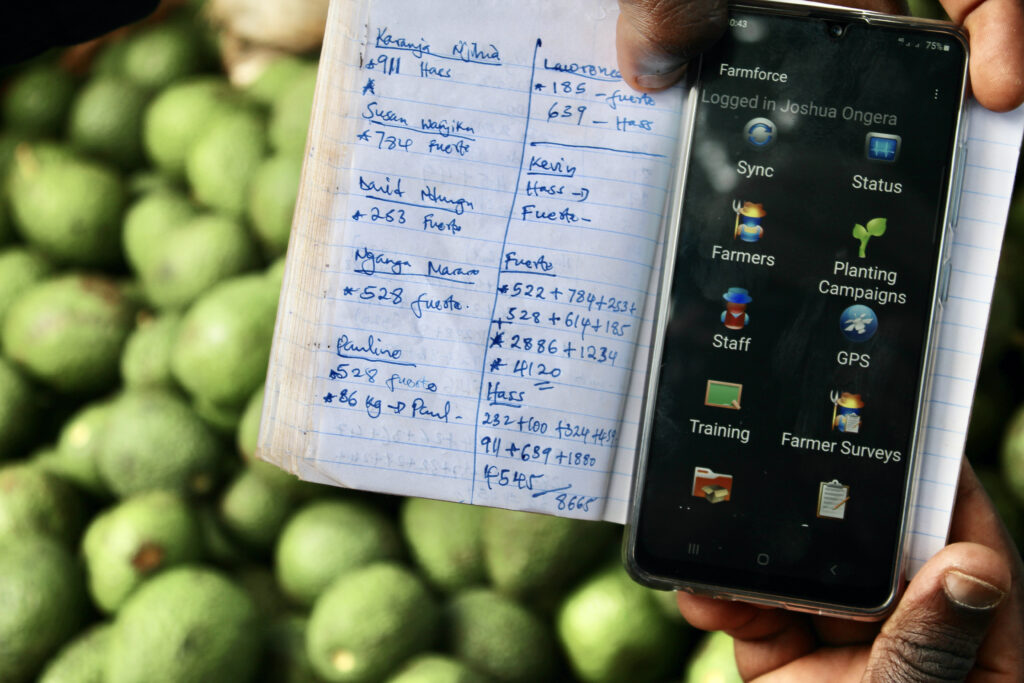 Karanja Njihia
* 911 Hass
*
Susan Wanjiku
* 784 Fuerte
David Ndungu
* 253 Fuerte
Nganga Mararo
* 528 fuerte.
Pauline
* 528 fuerte
* 86 Kg → Paul -
Lawrence
* 185 - fuerte
639 - Hass
Kevin
Hass →
Fuerte -
Fuerte
* 522 + 784 + 253 +
+ 528 + 614 + 185
* 2886 + 1234
* 4120
Hass
232 + 600 + 324 +
911 + 639 + 1880
4545 / 8665
0:43
75%
Farmforce
Logged in Joshua Ongera
Sync
Status
Farmers
Planting
Campaigns
Staff
GPS
Training
Farmer Surveys